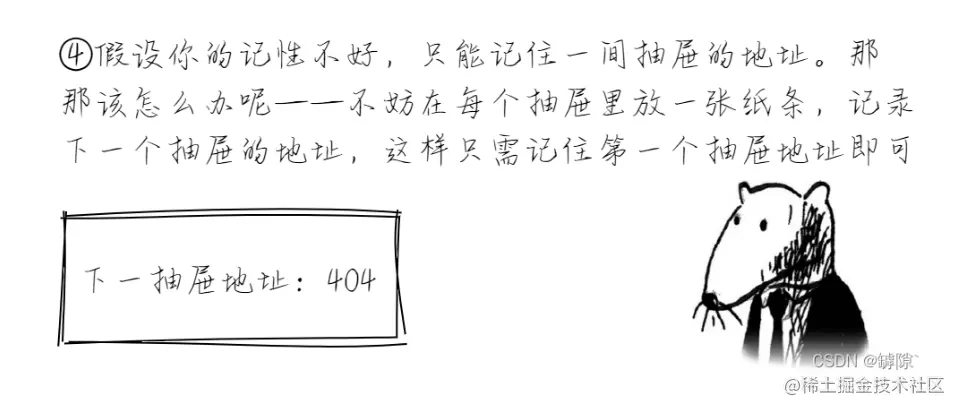 ④假设你的记性不好，只能记住一间抽屉的地址。那
那该怎么办呢——不妨在每个抽屉里放一张纸条，记录
下一个抽屉的地址，这样只需记住第一个抽屉地址即可
下一抽屉地址：404
CSDN @罅隙`
@稀土掘金技术社区